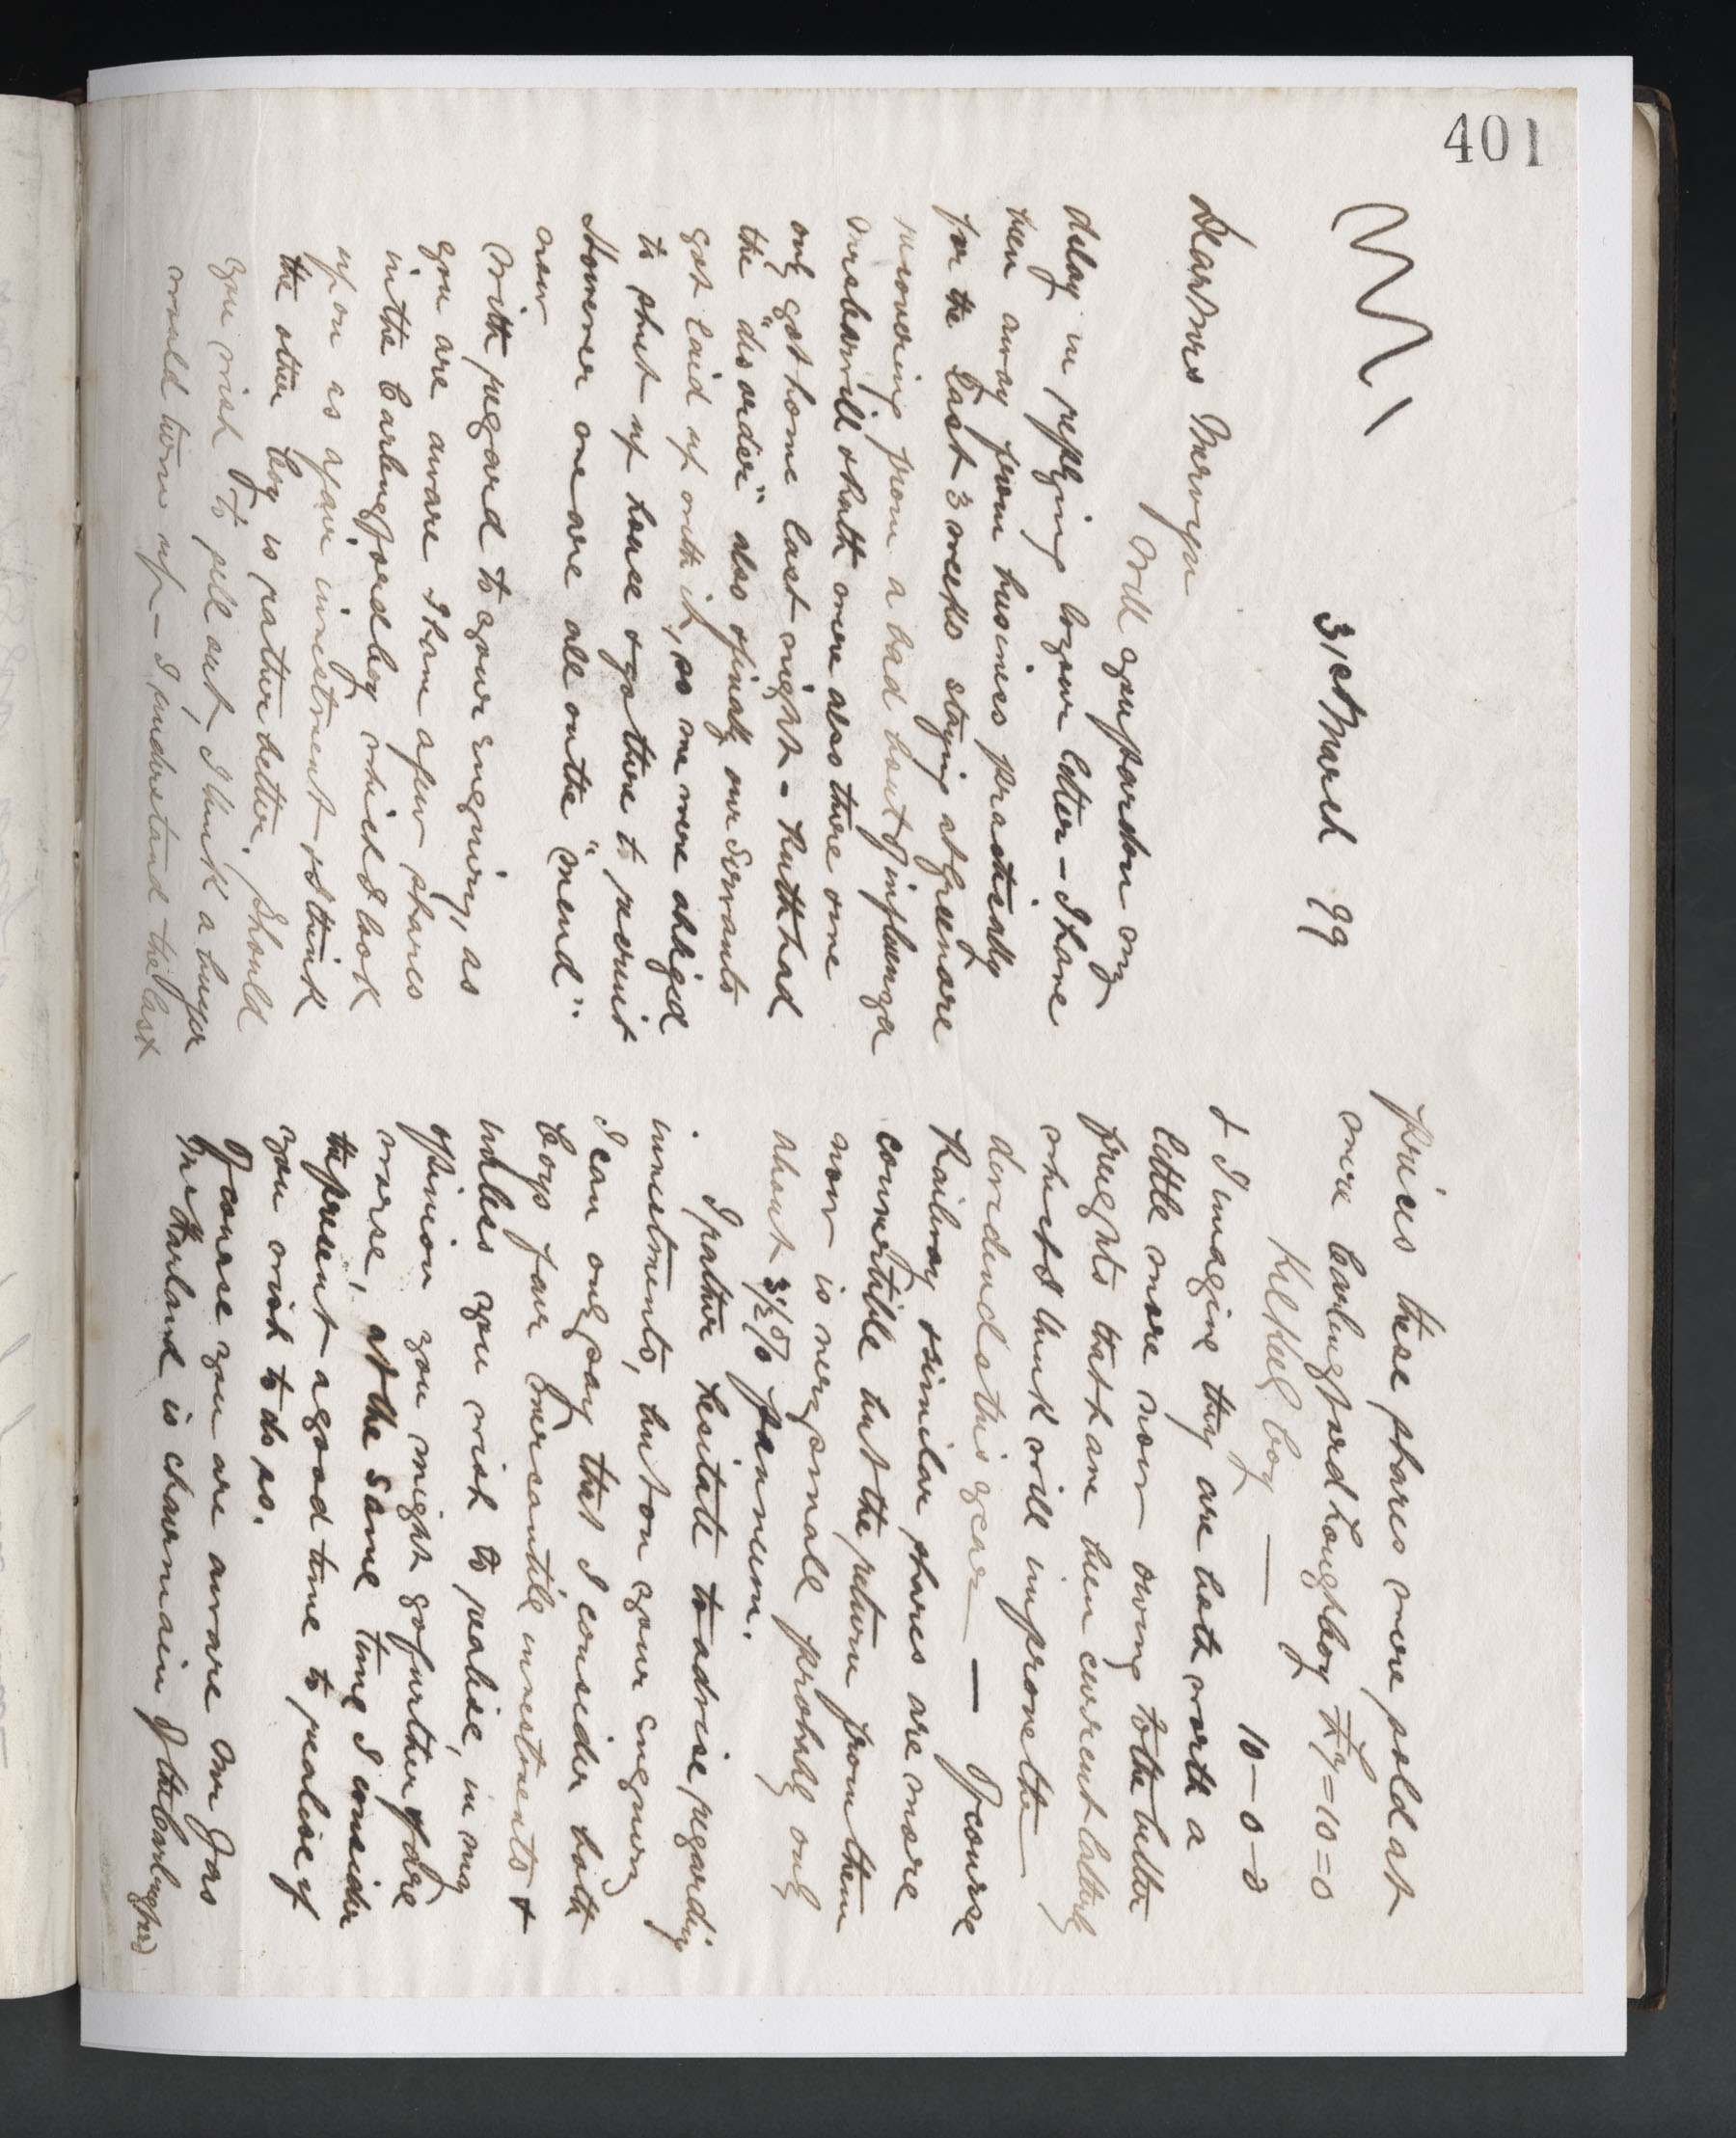 401
31st March 99
Dear Mrs Merwyn
Will you pardon my
delay in replying to your letter - I have
been away from business practically
for the last 3 weeks staying at Greenore
recovering from a bad bout of influenza
Mrs Barwill & Ruth were also there & we
only got home last night - Ruth had
the "disorder" also & finally our servants
got laid up with it, so we were obliged
to shut up house & go there to recruit
However we are all on the "mend".
now
With regard to your enquiry, as
you are aware I have a few shares
in the Carlingford Loy which I look
upon as a fair investment & I think
the other Loy is rather better. Should
you wish to sell out, I think a buyer
would turn up - I understand the last
prices these shares were sold at
were Carlingford Lough Loy £9=10=0
Kilkeel Loy — 10-0-0
& I imagine they are both worth a
little more now owing to the better
freights that have been current lately
which I think will improve the
dividends this year — Of course
Railway & similar shares are more
convertible but the return from them
now is very small probably only
about 3½% per annum.
I rather hesitate to advise regarding
investments, but on your enquiry
I can only say that I consider both
Loys fair mercantile investments &
unless you wish to realise, in my
opinion you might go further & fare
worse, at the same time I consider
the present a good time to realise if
you wish to do so.
Of course you are aware Mr Jas
McHarland is chairman of the Carlingford